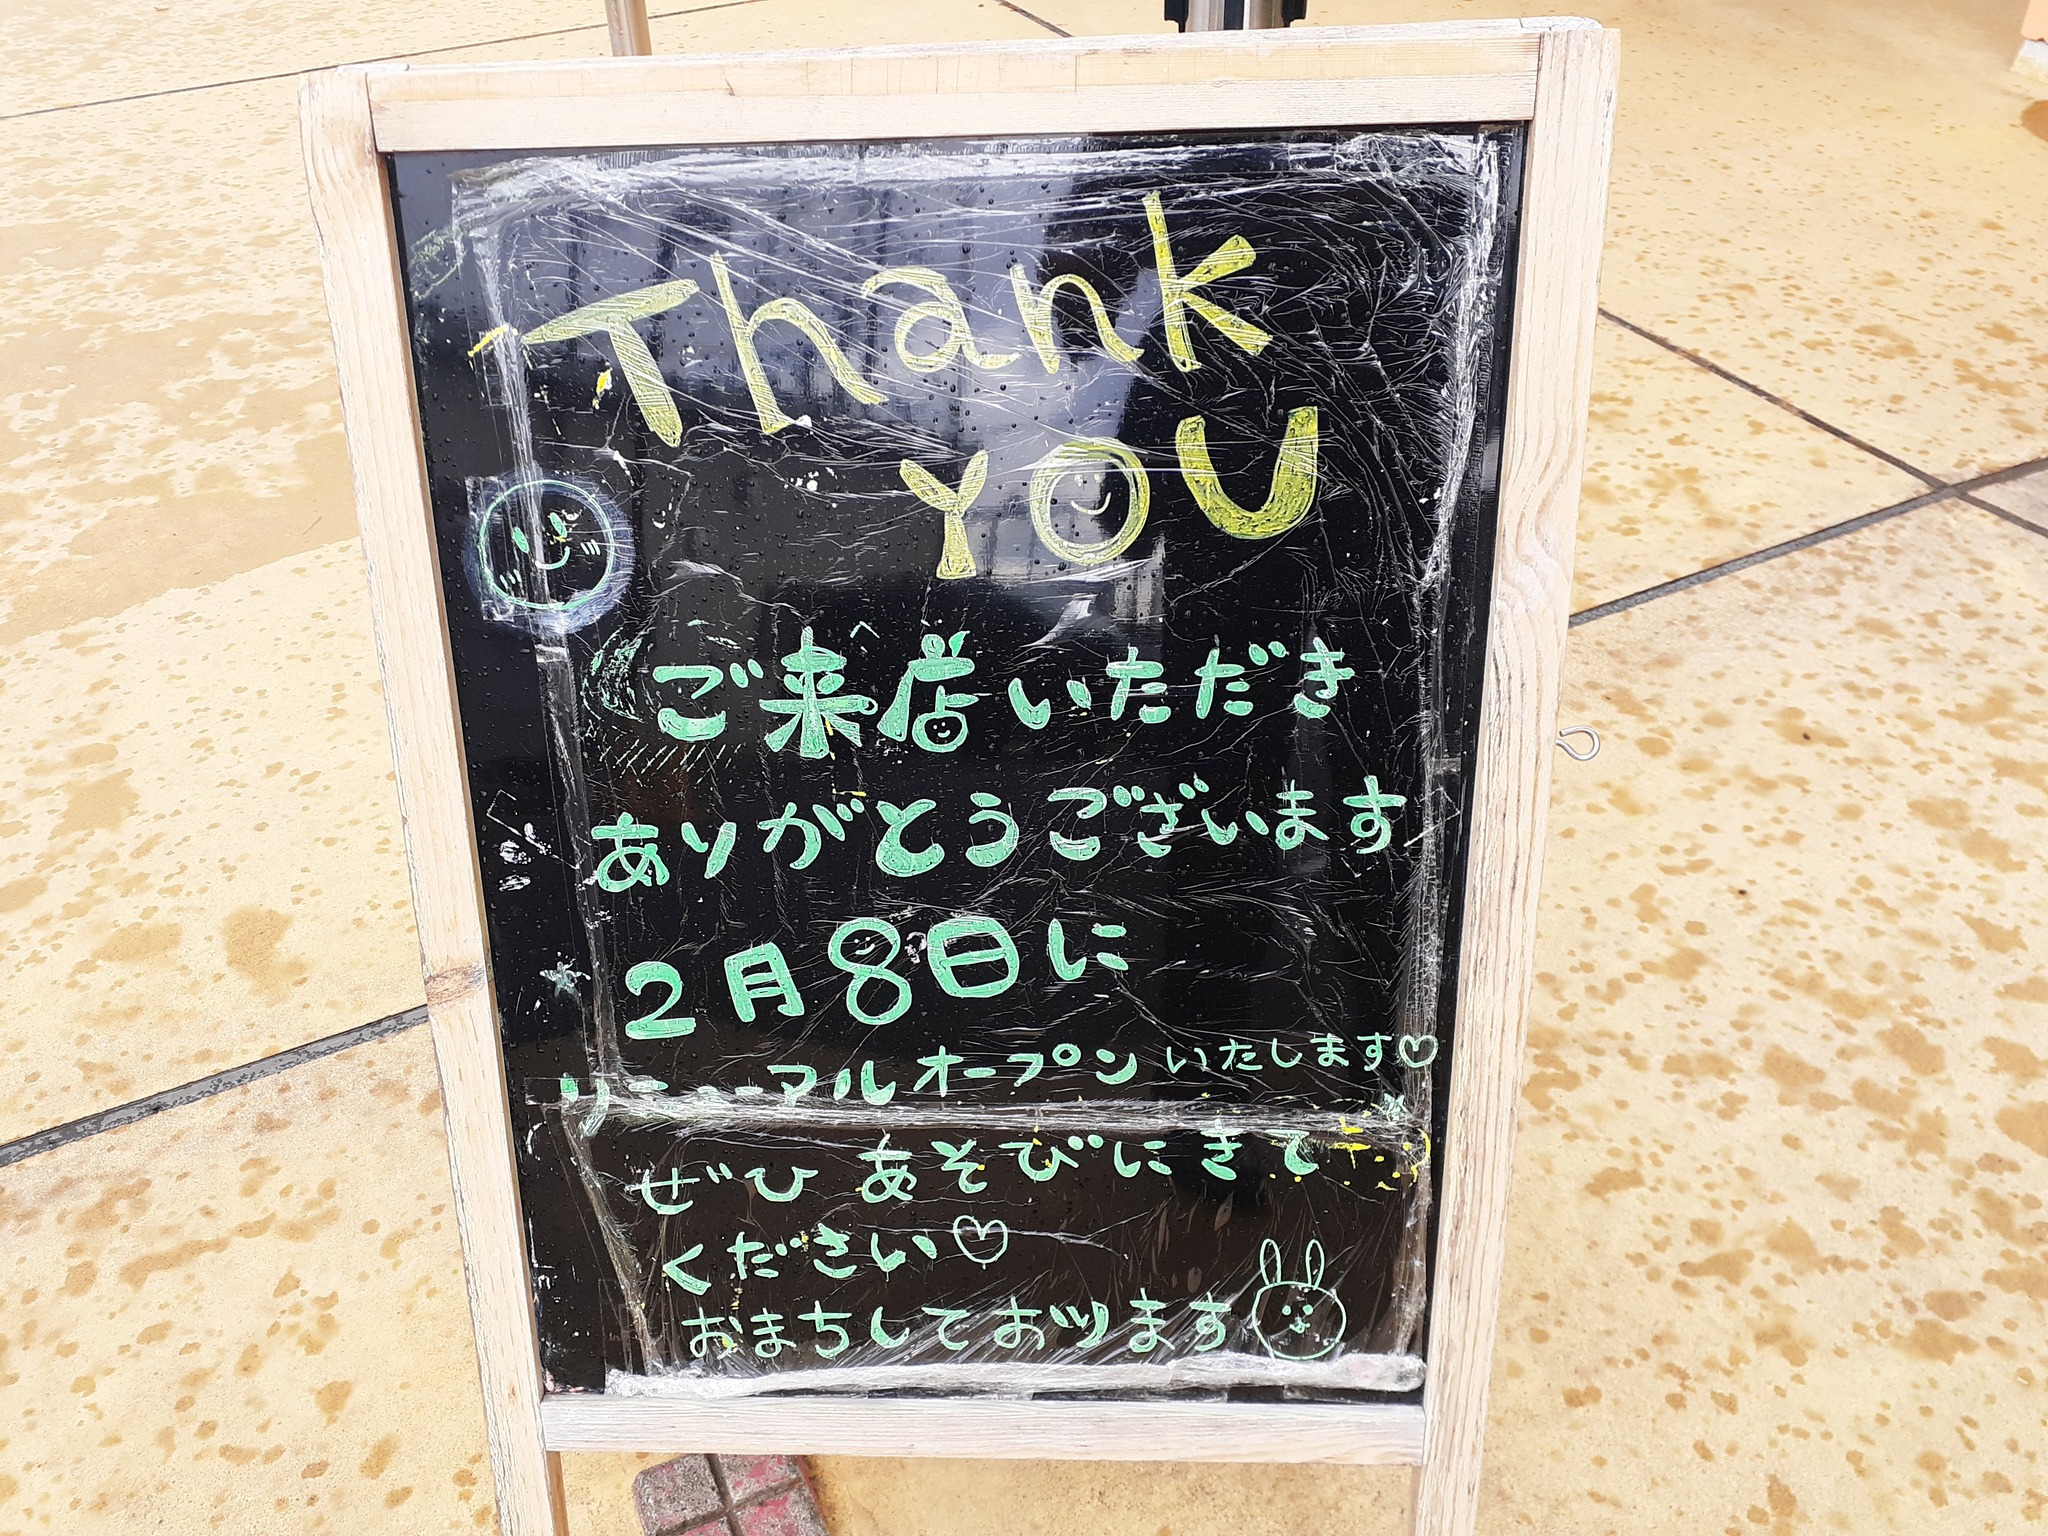 Thank
YOU
ご来店いただき
ありがとうございます
2月8日に
リニューアルオープンいたします♡
ぜひあそびにきて
ください♡
おまちしておリます